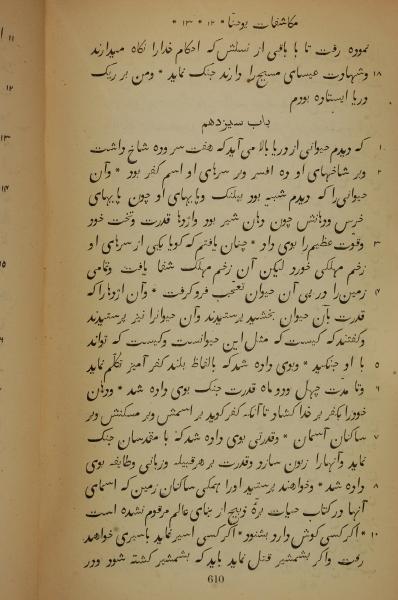 مکاشفات یوحنّا * ۱۲ * ۱۳ *
نموده رفت تا با باقی از نسلش که احکام خدا را نگاه میدارند
۱۸ وشهادت عیسای مسیح را دارند جنک نماید * ومن بر ریک
دریا ایستاده بودم
باب سیزدهم
۱ که دیدم حیوانی از دریا بالا می آید که هفت سر وده شاخ داشت
۲ وبر شاخهای او ده افسر وبر سرهای او اسم کفر بود * وآن
حیوانی را که دیدم شبیه بود بپلنک وپایهای او چون پایهای
خرس ودهانش چون دهان شیر بود واژدها قدرت وتخت خود
۳ وقوّت عظیم را بوی داد * چنان یافتم که کویا یکی از سرهای او
زخم مهلکی خورد لیکن آن زخم مهلک شفا یافت وتمامی
۴ زمین را در پی آن حیوان تعجّب فرو کرفت * وآن اژدها را که
قدرت بآن حیوان بخشید پرستیدند وآن حیوانرا نیز پرستیدند
وکفتند که کیست که مثل این حیوانست وکیست که تواند
۵ با او جنکید * وبوی داده شد که بالفاظ بلند کفر آمیز تکلّم نماید
۶ وتا مدّت چهل ودو ماه قدرت جنک بوی داده شد * ودهان
خود را بکفر بر خدا کشاد تا آنکه کفر کوید بر اسمش وبر مسکنش وبر
۷ ساکنان آسمان * وقدرتی بوی داده شد که با مقدسان جنک
نماید وآنها را زبون سازد وقدرت بر هر قبیله وزبانی وطایفه بوی
۸ داده شد * وخواهند پرستید اورا همکی ساکنان زمین که اسمای
آنها در کتاب حیات برّهٔ ذبیح از بنای عالم مرقوم نشده است
۱۰ * اکر کسی کوش دارد بشنود * اکر کسی اسیر نماید باسیری خواهد
رفت واکر بشمشیر قتل نماید باید که بشمشیر کشته شود ودر
610